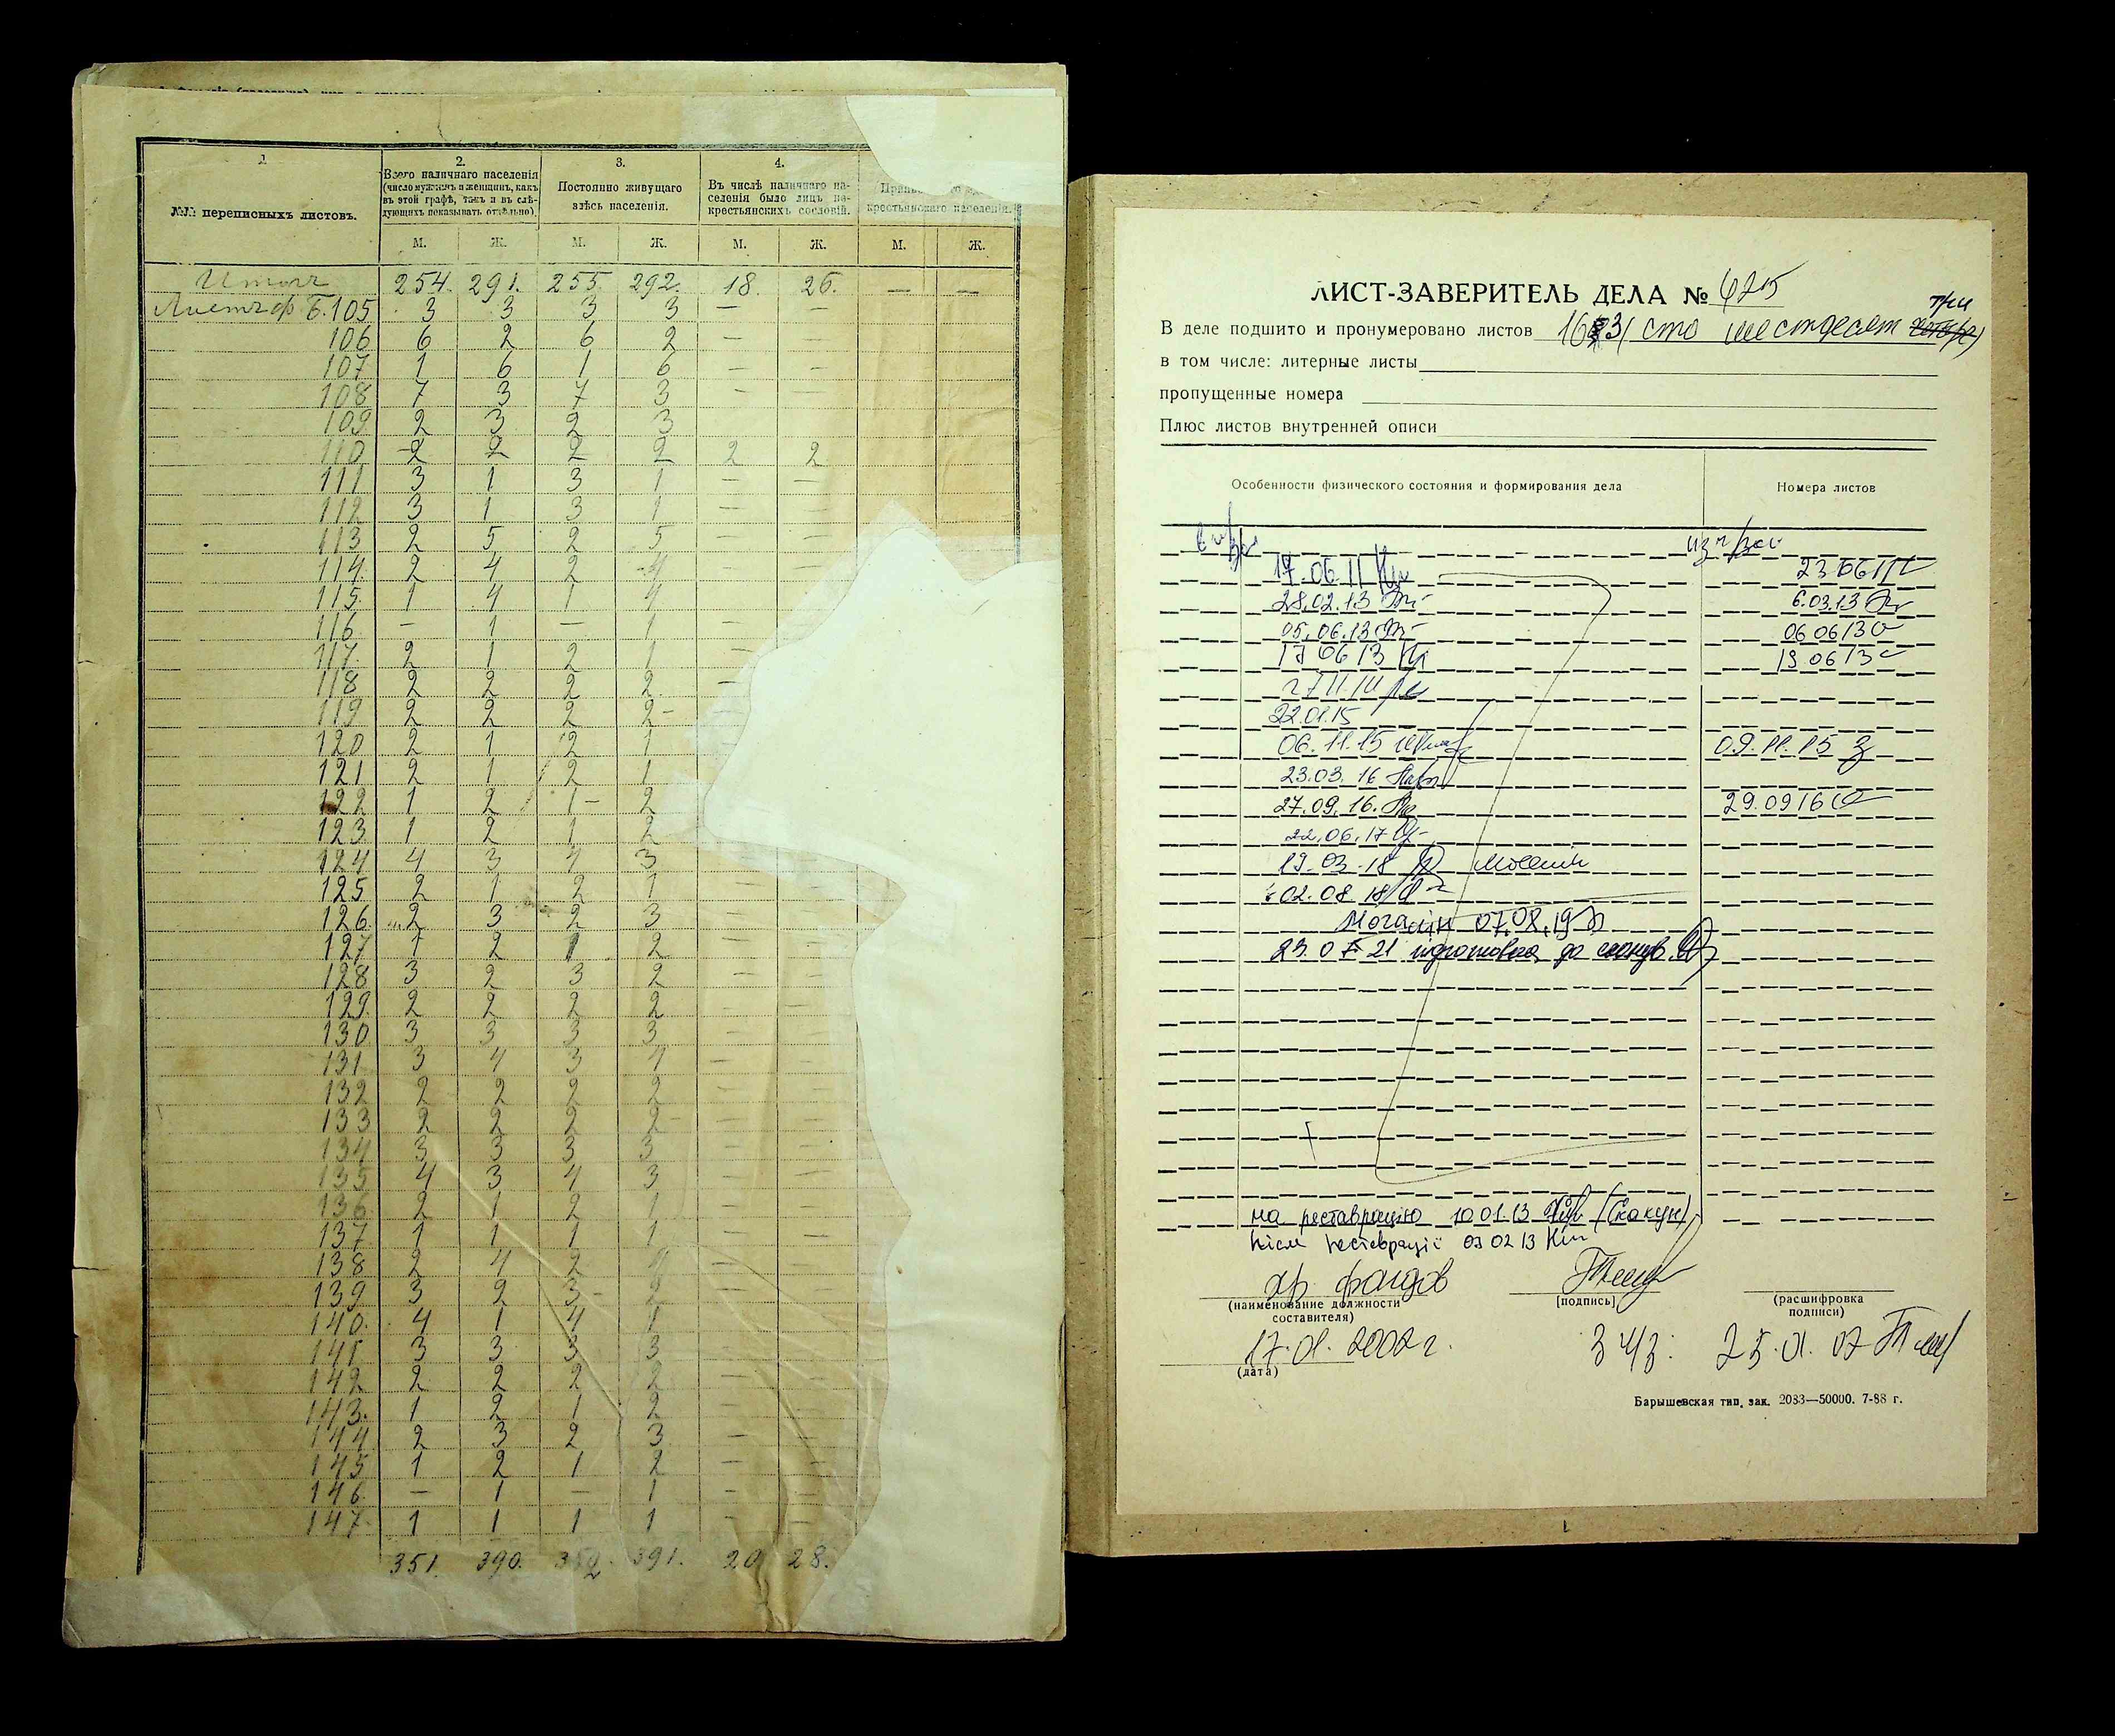 1
2.
3.
4.
№№ переписныхъ листовъ.
Всего наличнаго населенія
(число мужчинъ и женщинъ, какъ
въ этой графѣ, такъ и въ слѣ-
дующихъ показывать отдѣльно)
Постоянно живущаго
здѣсь населенія.
Въ числѣ наличнаго на-
селенія было лицъ не-
крестьянскихъ сословій.
крестьянскаго населенія.
М. Ж. М. Ж. М. Ж. М. Ж.
Итого 254. 291. 255. 292. 18. 26. — —
Листъ ф Б. 105 3 3 3 3 — —
106 6 2 6 2 — —
107 1 6 1 6 — —
108 7 3 7 3 — —
109 2 3 2 3
110 2 2 2 2 2 2
111 3 1 3 1 — —
112 3 1 3 1 — —
113 2 5 2 5 — —
114. 2 4 2 4 — —
115. 1 4 1 4 — —
116 — 1 — 1 —
117. 2 1 2 1 —
118 2 2 2 2. —
119 2 2 2 2 —
120 2 1 2 1
121 2 1 2 1
122 1 2 1 2
123 1 2 1 2
124 4 3 4 3 — —
125 2 1 2 1 — —
126. 2 3 2 3 — —
127 1 2 1 2 — —
128 3 2 3 2 — —
129. 2 2 2 2 — —
130 3 3 3 3 — —
131 3 4 3 4 — —
132 2 2 2 2 — —
133 2 2 2 2 — —
134 3 3 3 3 — —
135 4 3 4 3 — —
136 2 1 2 1 — —
137 1 1 1 1 — —
138 2 4 2 4 — —
139 3 2 3 2 — —
140. 4 1 4 1 — —
141 3 3 3 3 — —
142 2 2 2 2 — —
143. 1 2 1 2 — —
144 2 3 2 3 — —
145 1 2 1 2 — —
146. — 1 — 1 — —
147. 1 1 1 1 — —
351. 390. 352. 391. 20 28.
ЛИСТ-ЗАВЕРИТЕЛЬ ДЕЛА №
В деле подшито и пронумеровано листов 163 (сто шестдесят три
в том числе: литерные листы
пропущенные номера
Плюс листов внутренней описи
Особенности физического состояния и формирования дела
Номера листов
17.06.11 23.06.11
28.02.13 6.03.13
05.06.13 06 06 13
17 06 13 19 06 13
22.01.15
06.11.15 09.11.15
23.03.16
27.09.16. 29.09 16
22.06.17
19.03.18
02.08.18
07.08.19
на реставрацію 10 01 13 (Скакун)
Після реставрації 03 02 13
хр. фондов
(наименование должности
составителя)
(подпись)
(расшифровка
подписи)
17.01.2002 г.
25.01.07
(дата)
Барышевская тип. зак. 2083—50000. 7-88 г.